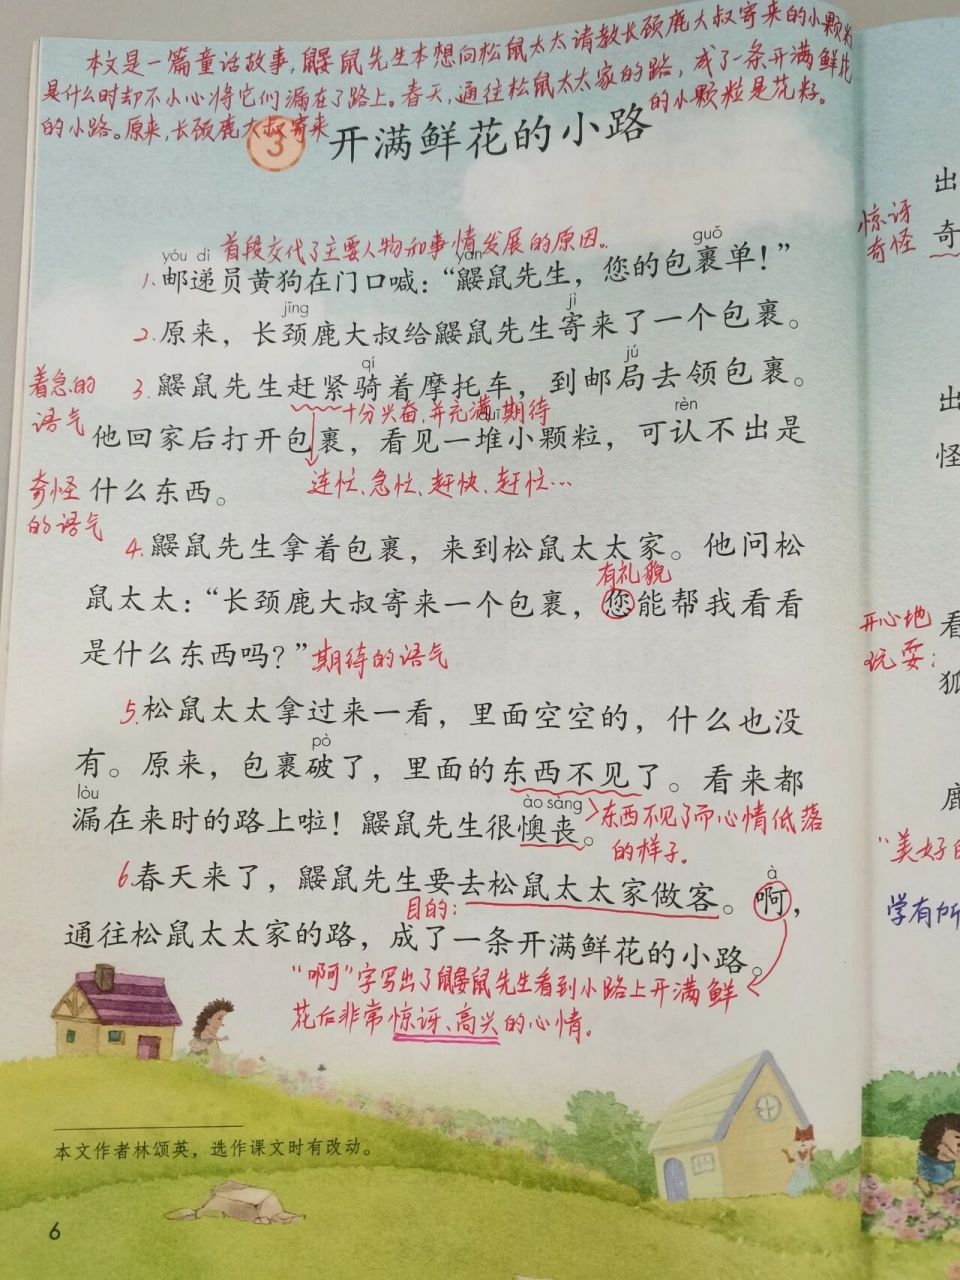 本文是一篇童话故事,鼹鼠先生本想向松鼠太太请教长颈鹿大叔寄来的小颗粒
是什么时却不小心将它们漏在了路上。春天,通往松鼠太太家的路,成了一条开满鲜花
的小路。原来,长颈鹿大叔寄来的小颗粒是花籽。
3 开满鲜花的小路
首段交代了主要人物和事情发展的原因。
yóu dì yǎn guǒ
1.邮递员黄狗在门口喊:“鼹鼠先生,您的包裹单!”
jǐng jì
2.原来,长颈鹿大叔给鼹鼠先生寄来了一个包裹。
qí jú
着急的
语气
3.鼹鼠先生赶紧骑着摩托车,到邮局去领包裹。
十分兴奋,并充满期待
duī rèn
他回家后打开包裹,看见一堆小颗粒,可认不出是
奇怪
的语气
什么东西。
连忙、急忙、赶快、赶忙…
4.鼹鼠先生拿着包裹,来到松鼠太太家。他问松
有礼貌
鼠太太:“长颈鹿大叔寄来一个包裹,您能帮我看看
是什么东西吗?”期待的语气
5.松鼠太太拿过来一看,里面空空的,什么也没
pò
有。原来,包裹破了,里面的东西不见了。看来都
lòu ào sàng
漏在来时的路上啦!鼹鼠先生很懊丧。
东西不见了而心情低落
的样子.
à
6.春天来了,鼹鼠先生要去松鼠太太家做客。啊,
目的:
通往松鼠太太家的路,成了一条开满鲜花的小路。
“啊”字写出了鼹鼠先生看到小路上开满鲜
花后非常惊讶、高兴的心情。
本文作者林颂英,选作课文时有改动。
6
出
惊讶
奇怪
奇
出
怪
开心地
玩耍:
看
狐
鹿
“美好的
学有所